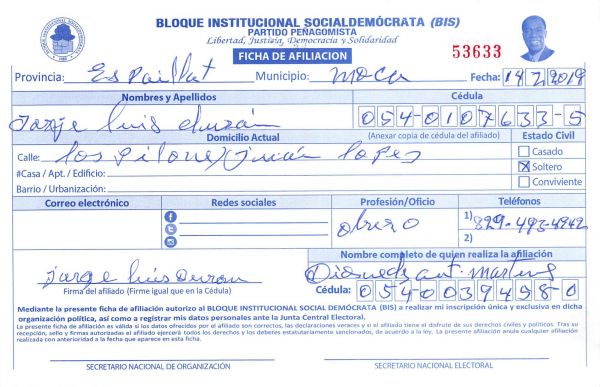 BLOQUE INSTITUCIONAL SOCIALDEMÓCRATA (BIS)
PARTIDO PEÑAGOMISTA
Libertad, Justicia, Democracia y Solidaridad
FICHA DE AFILIACION
53633
Provincia: Espaillat Municipio: Moca Fecha: 14 2 2019
Nombres y Apellidos Cédula
Jorge Luis Durán 054-0107633-5
Domicilio Actual (Anexar copia de cédula del afiliado) Estado Civil
Calle: Los Pilones/Juan Lopez Casado
#Casa / Apt. / Edificio: X Soltero
Barrio / Urbanización: Conviviente
Correo electrónico Redes sociales Profesión/Oficio Teléfonos
obrero 1) 829-493-4942
2)
Nombre completo de quien realiza la afiliación
Jorge Luis Duran ant. Martinez
Firma del afiliado (Firme igual que en la Cédula) Cédula: 054-0039498-0
Mediante la presente ficha de afiliación autorizo al BLOQUE INSTITUCIONAL SOCIAL DEMÓCRATA (BIS) a realizar mi inscripción única y exclusiva en dicha
organización política, así como a registrar mis datos personales ante la Junta Central Electoral.
La presente ficha de afiliación es válida si los datos ofrecidos por el afiliado son correctos, las declaraciones veraces y si el afiliado tiene el disfrute de sus derechos civiles y políticos. Tras su
recepción, sello y firmas autorizadas el afiliado ejercerá todos los derechos y los deberes estatutariamente sancionados, de acuerdo a la ley. La presente afiliación anula cualquier afiliación
realizada con anterioridad a la fecha que aparece en esta ficha.
SECRETARIO NACIONAL DE ORGANIZACIÓN SECRETARIO NACIONAL ELECTORAL